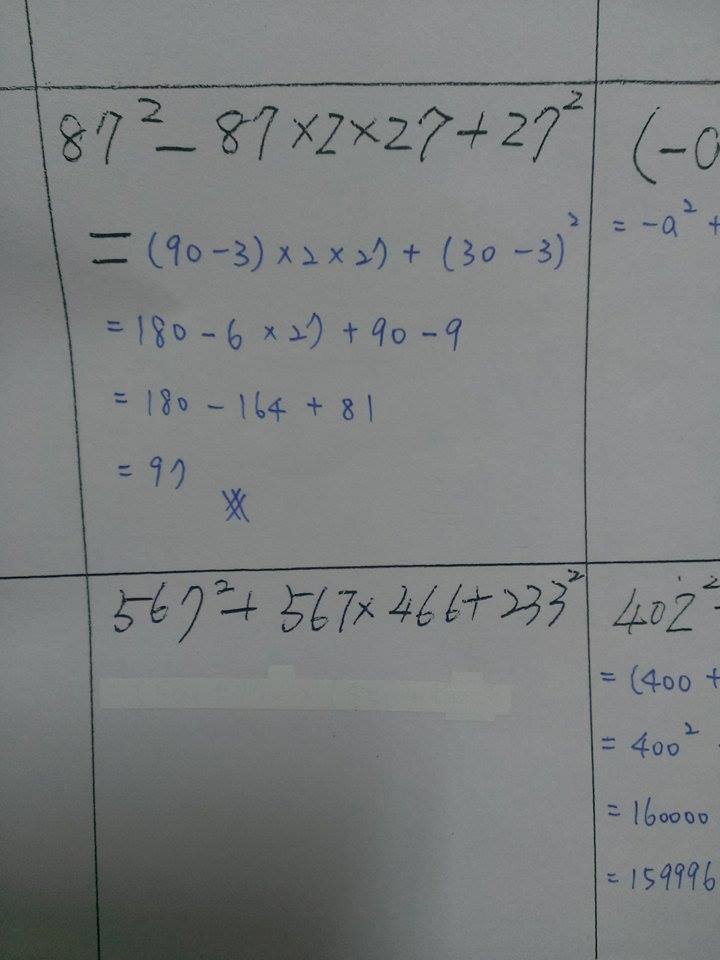 87² - 87×2×27+27²
= (90-3)×2×27+(30-3)²
= 180-6×27+90-9
= 180-164+81
= 97
567²+567×466+233²
(-a
= -a²+
402²-
= (400+
= 400²
= 160000
= 159996